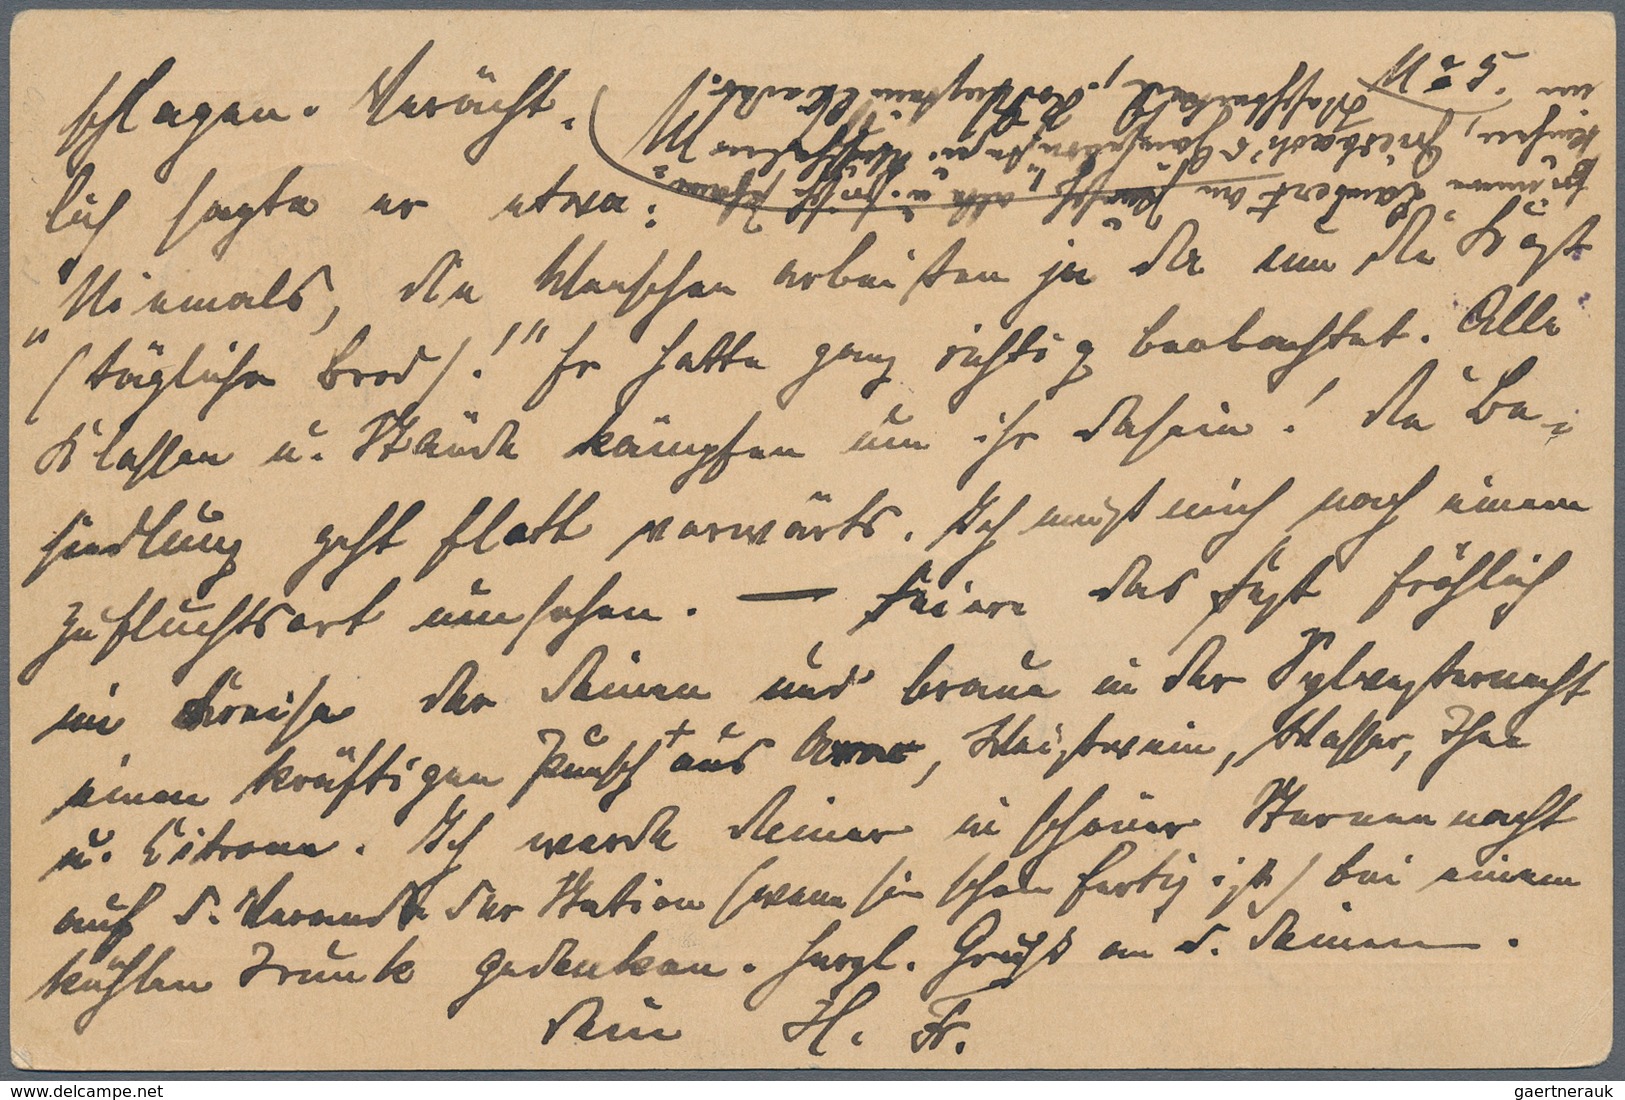 schlagen. Verächt-
lich sagte er etwa:
"Niemals, die Menschen arbeiten ja da um die Kost
(tägliche Brod)!" Er hatte ganz richtig beobachtet. Alle
Klassen u. Stände kämpfen um ihr Dasein! Die Be-
siedlung geht flott vorwärts. Ich muß mich nach einem
Zufluchtsort umsehen. — Feiere das Fest fröhlich
im Kreise der Deinen und braue in der Sylvesternacht
einen kräftigen Punsch + aus, Weißwein, Wasser, Thee
u. Citrone. Ich werde Deiner in schöner Sternennacht
auf d. Veranda der Station (wenn sie schon fertig ist) bei einem
kühlen Trunk gedenken. Herzl. Gruß an d. Deinen.
Dein H. Fr.
gaertnerauk